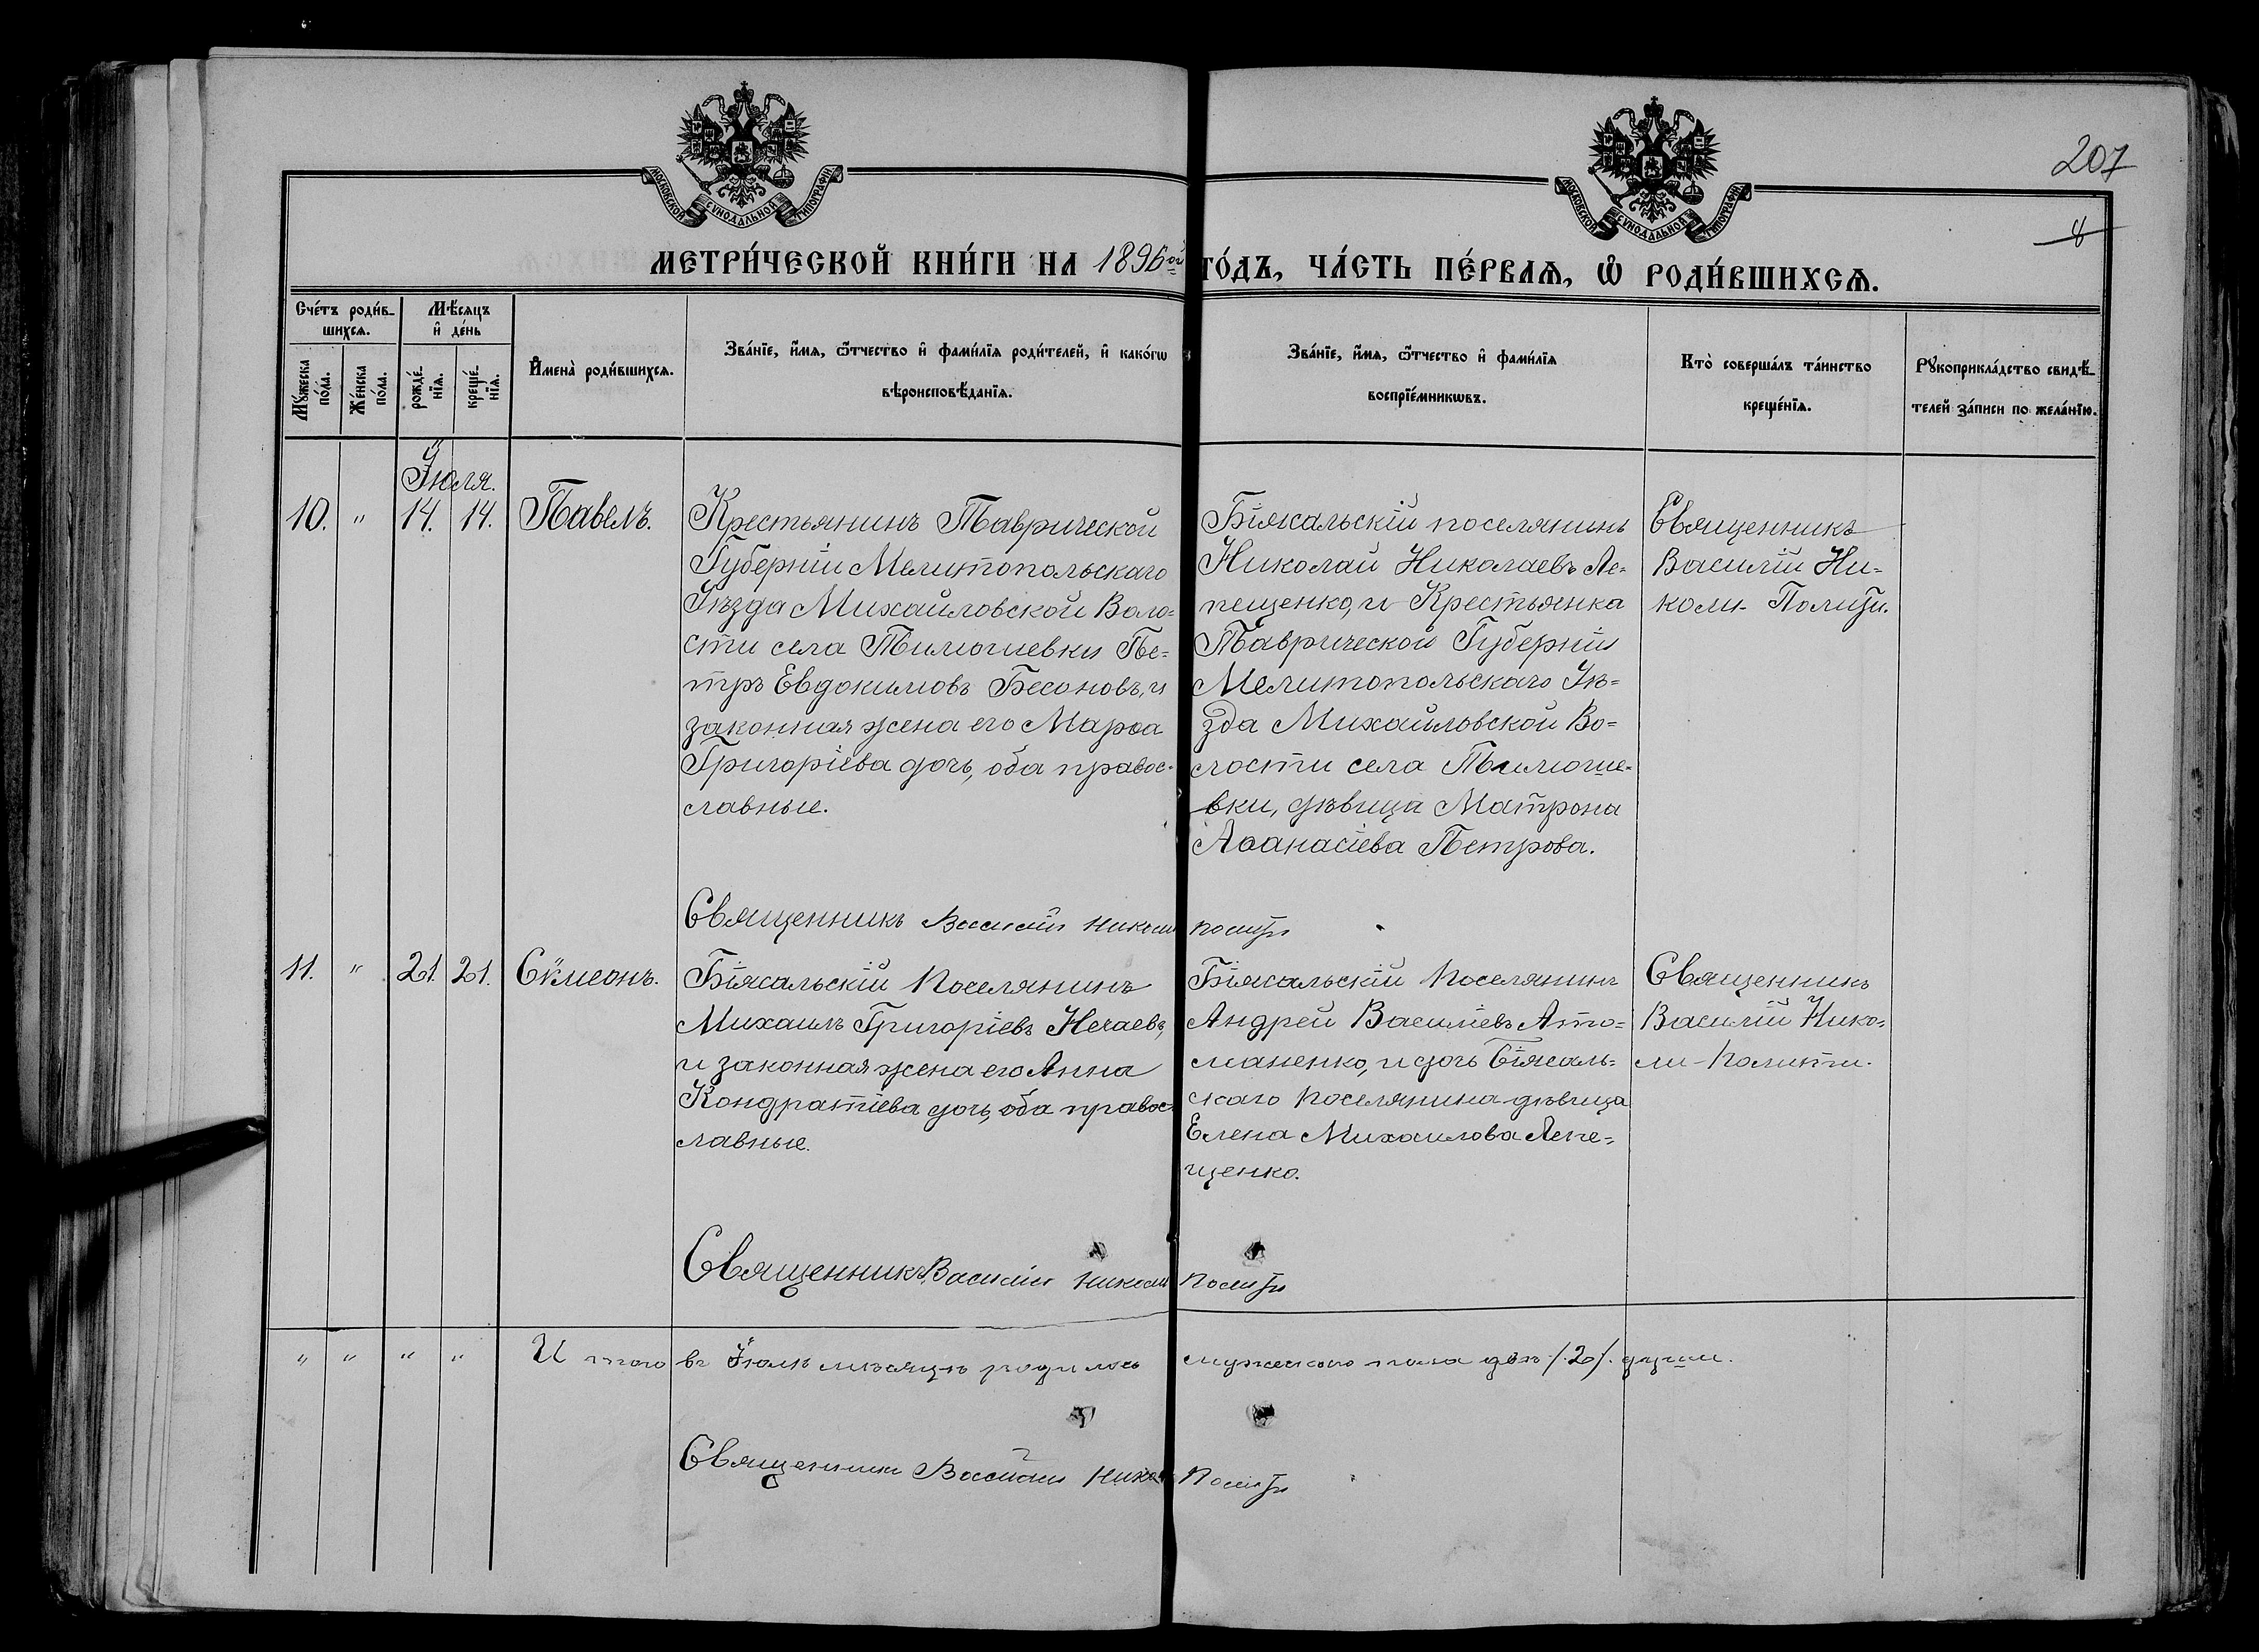 207
8
МОСКОВСКОЙ СѴНОДАЛЬНОЙ ТИПОГРАФІИ
МОСКОВСКОЙ СѴНОДАЛЬНОЙ ТИПОГРАФІИ
МЕТРИ́ЧЕСКОЙ КНИ́ГИ НА 1896ой ГО́ДЪ, ЧА́СТЬ ПЕ́РВАѦ, Ѡ҆ РОДИ́ВШИХСѦ.
Сче́тъ роди́в-
шихсѧ.
Мꙋ́жеска по́ла.
Же́нска по́ла.
Мѣ́сѧцъ
и҆ де́нь
рожде́-нїѧ.
креще́-нїѧ.
И҆мена̀ роди́вшихсѧ.
Зва́нїе, и҆́мѧ, ѻ҆́тчество и҆ фами́лїѧ роди́телей, и҆ како́гѡ
вѣроисповѣ́данїѧ.
Зва́нїе, и҆́мѧ, ѻ҆́тчество и҆ фами́лїѧ
воспрїе́мникѡвъ.
Кто̀ соверша́лъ та́инство
креще́нїѧ.
Рꙋкоприкла́дство свидѣ́-
телей за́писи по жела́нїю.
Іюля.
10. " 14. 14. Павелъ.
Крестьянинъ Таврической
Губерніи Мелитопольскаго
Уѣзда Михайловской Воло=
сти села Тимошевки Пе=
тръ Евдокимовъ Бесоновъ, и
законная жена его Марѳа
Григоріева дочь, оба правос-
славные.
Біясальскій поселянинъ
Николай Николаевъ Ле-
пещенко, и Крестьянка
Таврической Губерніи
Мелитопольскаго Уѣ=
зда Михайловской Во=
лости села Тимоше-
вки, дѣвица Матрона
Аѳанасіева Петрова.
Священникъ
Василій Ни-
коли- Полити.
Священникъ Василій Николи Полити
11. " 21. 21. Сѵмеонъ.
Біясальскій Поселянинъ
Михаилъ Григоріевъ Нечаевъ,
и законная жена его Анна
Кондратіева дочь, оба правос-
славные.
Біясальскій Поселянинъ
Андрей Василіевъ Ато=
маненко, и дочь Біясаль=
скаго Поселянина дѣвица
Елена Михаилова Лепе=
щенко.
Священникъ
Василій Нико=
ли-Полити.
Священникъ Василій Николи Полити
" " " " Итого въ Іюлѣ мѣсяцѣ родилось мужескаго пола двѣ /.2/. души.
Священникъ Василій Николи Полити